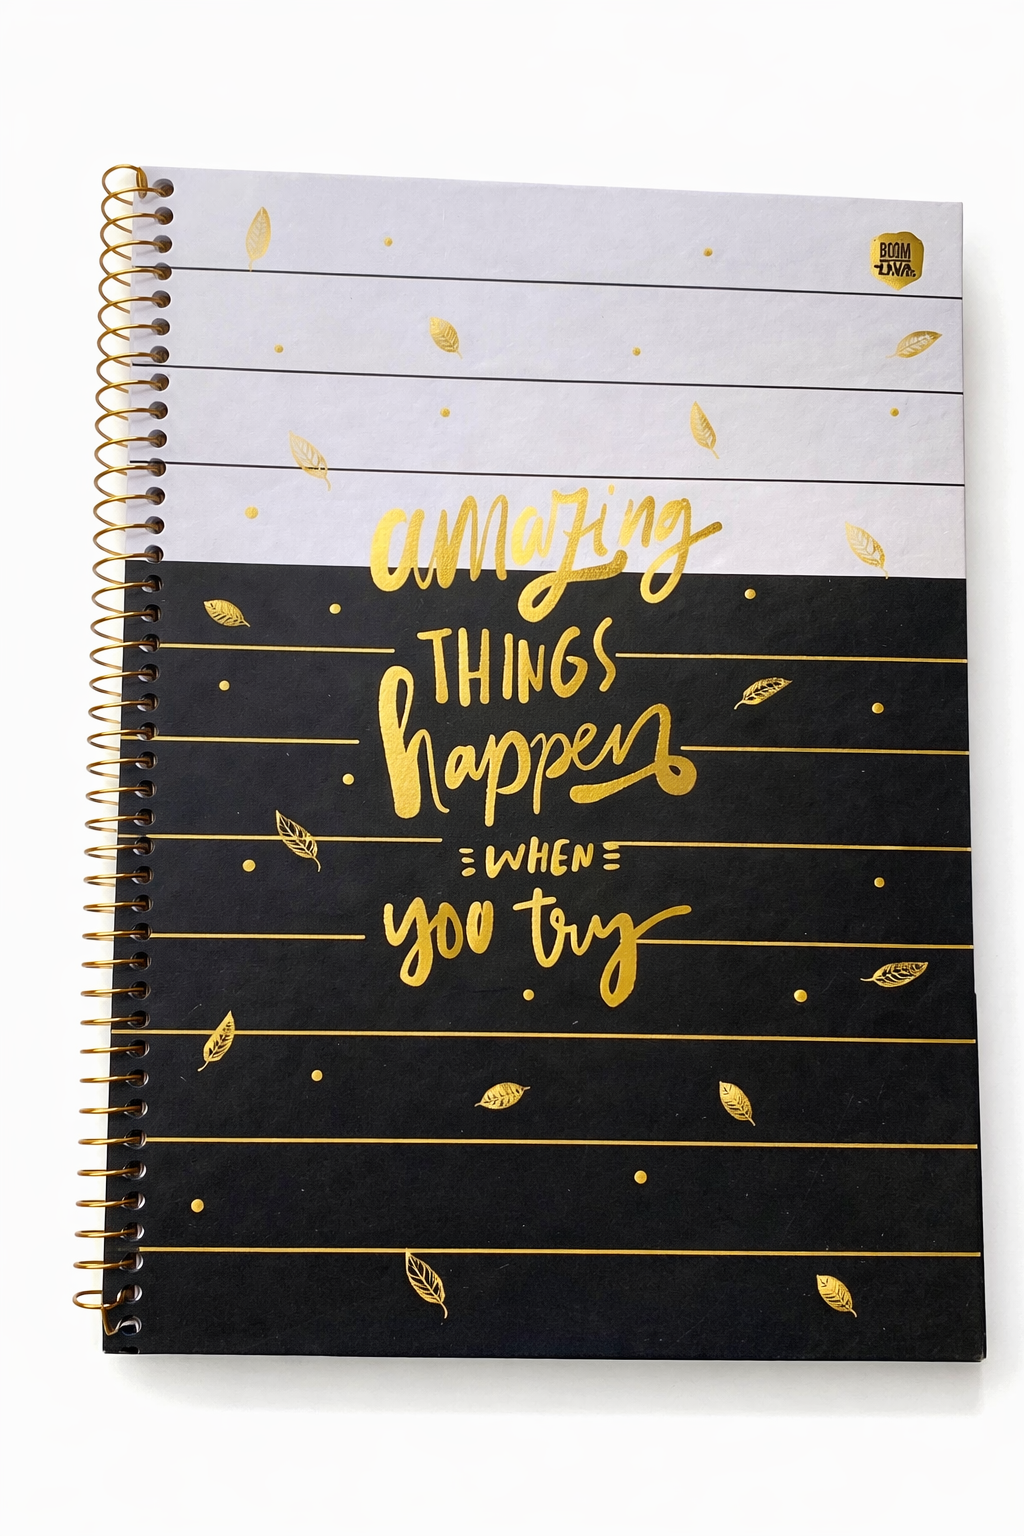 BOOM
amazing
THINGS
happen
WHEN
you try